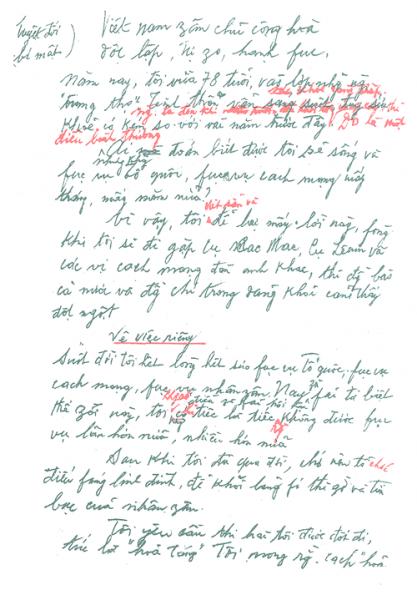 Tuyệt đối
bí mật
Việt nam zân chủ cộng hoà
độc lập, tự zo, hạnh fúc.
Năm này, tôi vừa 78 tuổi, vào lớp những người
"trung thọ". Tinh thần vẫn sáng suốt,
khoẻ có kém so với vài năm trước đây. Đó là một
điều bình thường
Ai mà đoán biết được tôi sẽ sống và
fục vụ tổ quốc, fục vụ cách mạng mấy
tháng, mấy năm nữa?
viết sẵn và
Vì vậy, tôi để lại mấy lời này, fòng
khi tôi sẽ đi gặp cụ Các Mác, cụ Lênin và
các vị cách mạng đàn anh khác, thì đồng bào
cả nước và đồng chí trong đảng khỏi cảm thấy
đột ngột.
Về việc riêng
Suốt đời tôi hết lòng hết sức fục vụ tổ quốc, fục vụ
cách mạng, fục vụ nhân zân. Nay zù fải từ biệt
thế zới này, tôi tiếc là tiếc không được fục
vụ lâu hơn nữa, nhiều hơn nữa
Sau khi tôi đã qua đời, chớ nên tổ chức
điếu fúng linh đình, để khỏi lãng fí thì zờ và tiền
bạc của nhân zân.
Tôi yêu cầu thi hài tôi được đốt đi,
tức là "hoả táng". Tôi mong rằng cách "hoả